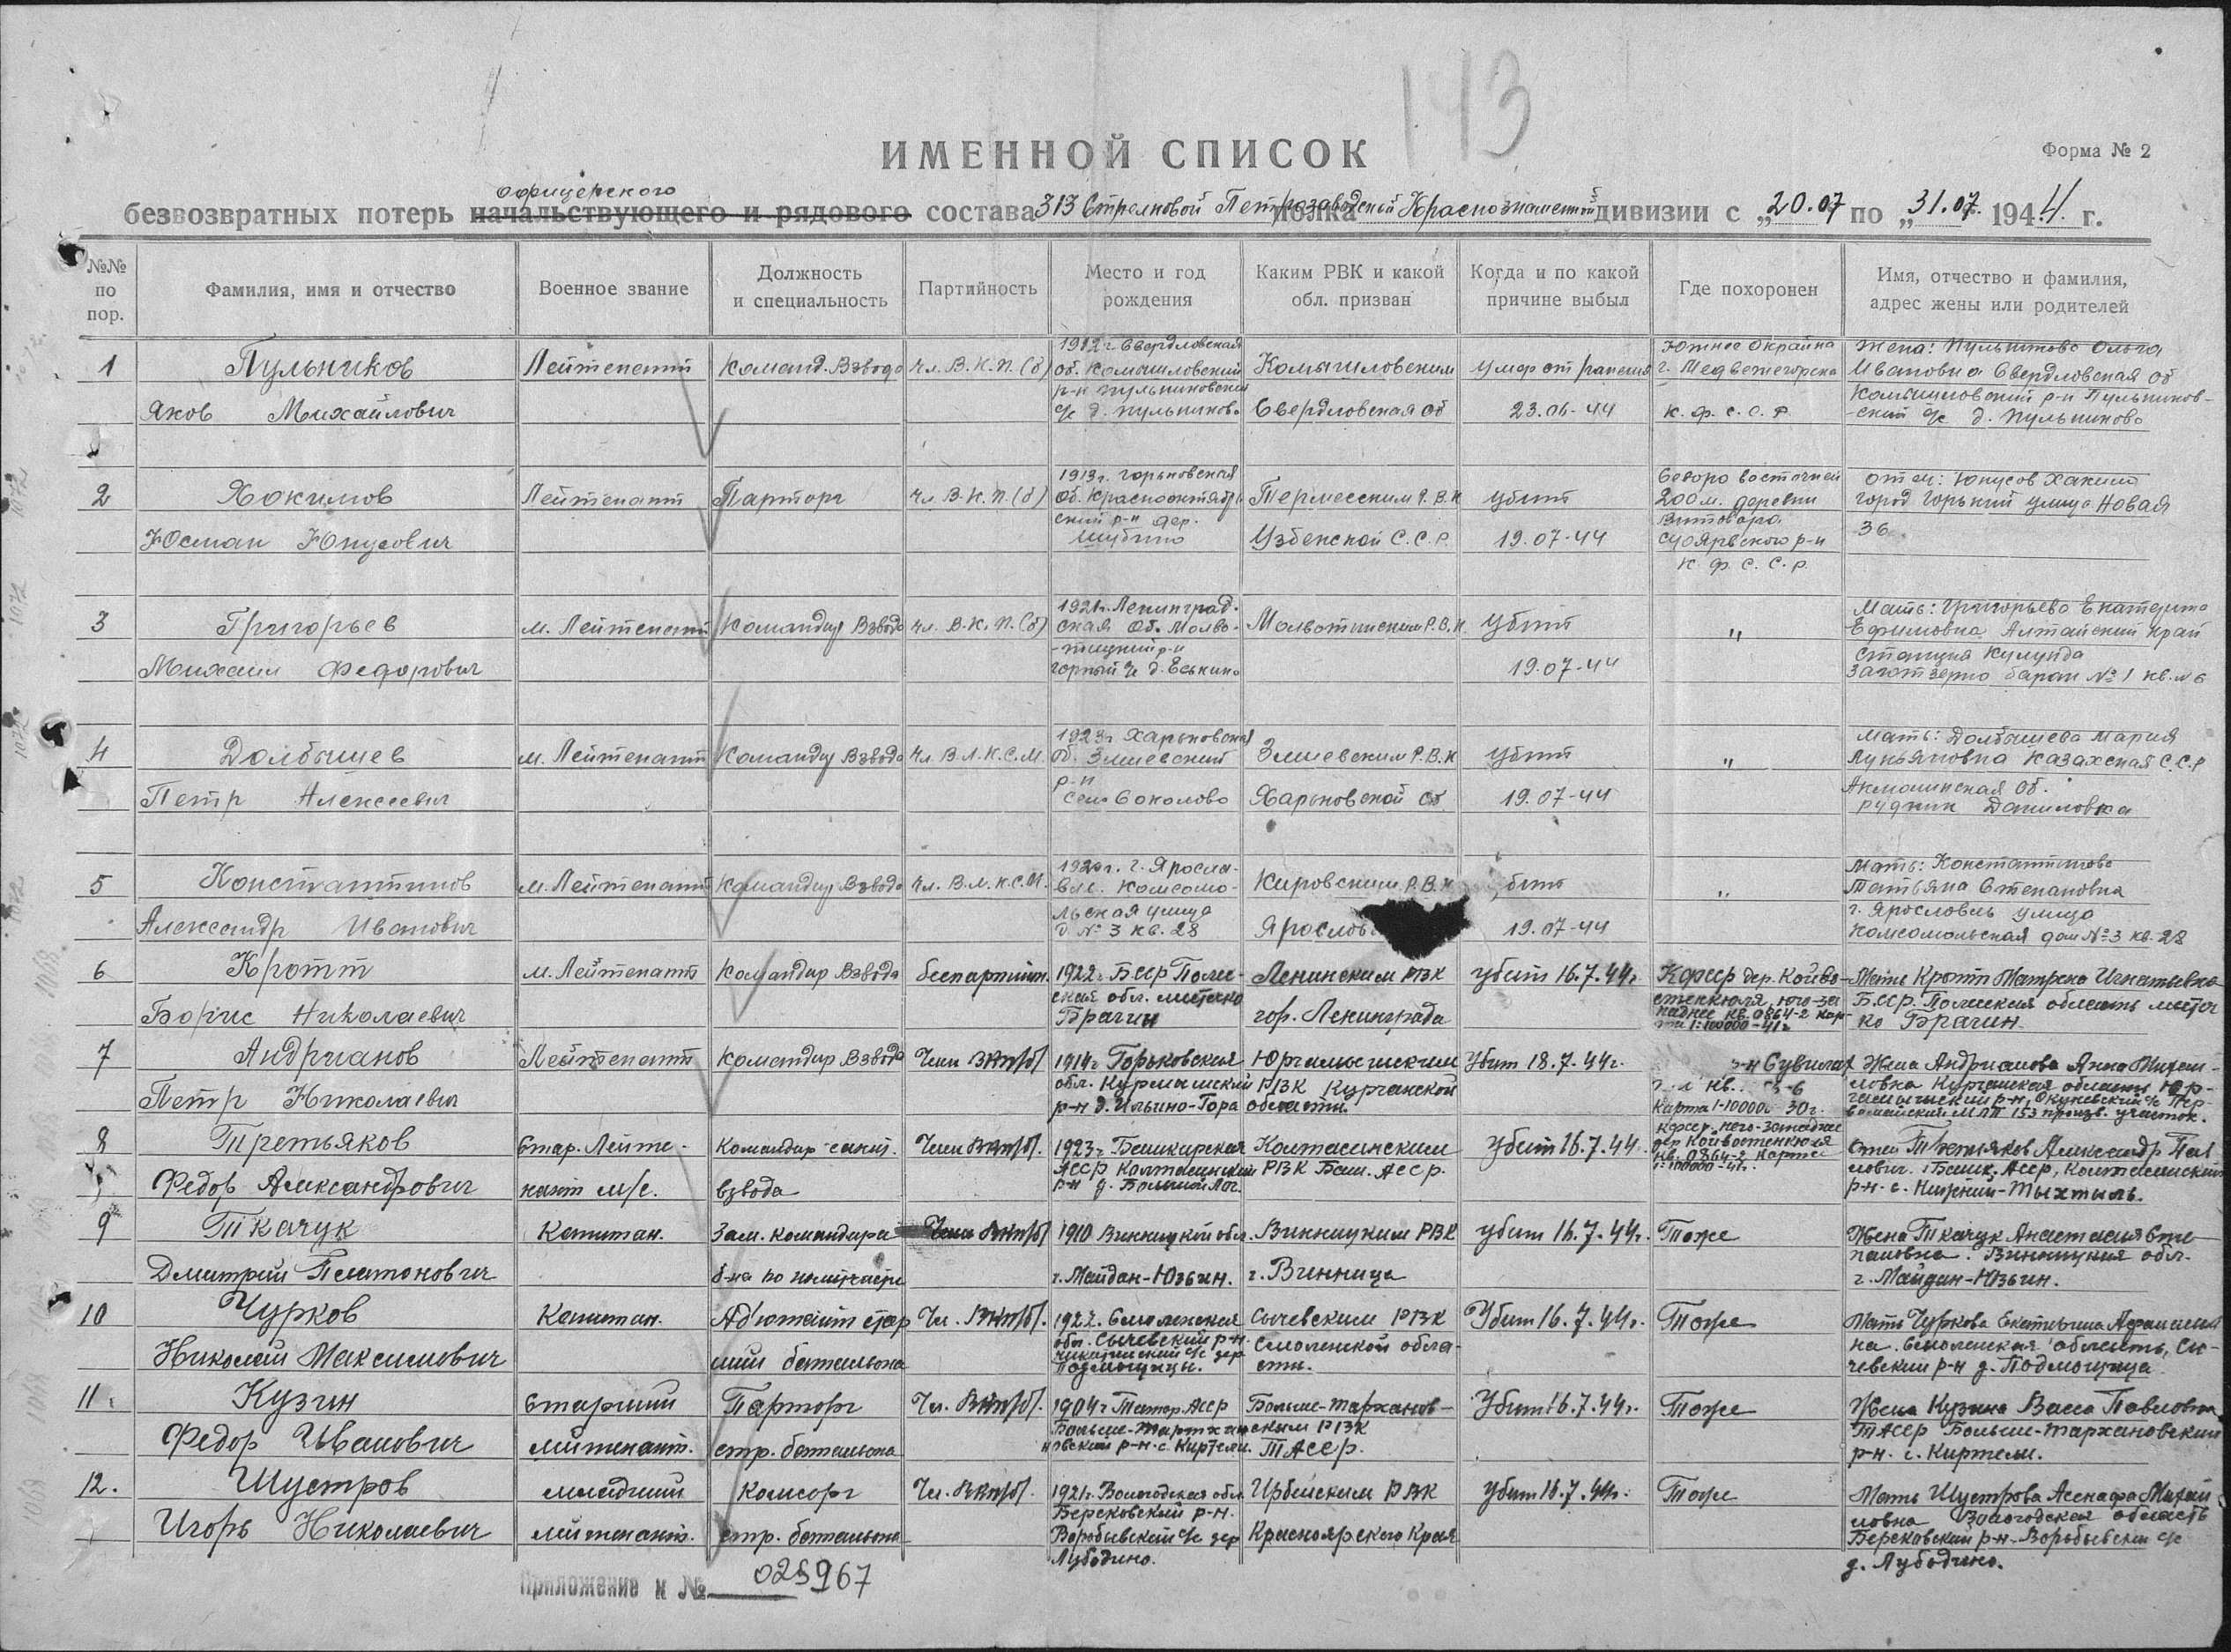 143
ИМЕННОЙ СПИСОК
Форма № 2
офицерского
безвозвратных потерь начальствующего и рядового состава 313 Стрелковой Петрозаводской полка Краснознаменной дивизии с „20.07 по „31.07. 1944 г.
№№ по пор.
Фамилия, имя и отчество
Военное звание
Должность и специальность
Партийность
Место и год рождения
Каким РВК и какой обл. призван
Когда и по какой причине выбыл
Где похоронен
Имя, отчество и фамилия, адрес жены или родителей
1
Пульников
Яков Михайлович
Лейтенант
Команд. Взвода
Чл. В.К.П.(б)
1912 г. Свердловская
об. Камышловский
р-н Пульниковский
с/с д. Пульниково
Камышловским
Свердловская об
умер от ранения
23.06-44
Южнее Окраина
г. Медвежегорска
К.Ф.С.С.Р.
Жена: Пульникова Ольга
Ивановна Свердловская об
Камышловский р-н Пульников-
-ский с/с д. Пульниково
2
Хакимов
Юсман Юнусович
Лейтенант
Парторг
Чл. В.К.П.(б)
1913 г. Горьковская
Об. Краснооктябрь
ский р-н дер.
Шубино
Термесским Р.В.К
Узбекской С.С.Р.
убит
19.07-44
Северо восточней
200 м. деревни
Витовара
Суоярвского р-н
К.Ф.С.С.Р.
отец: Юнусов Хаким
город Горький улица Новая
36
3
Григорьев
Михаил Федорович
м. Лейтенант
Командир Взвода
Чл. В.К.П.(б)
1921г. Ленинград-
ская Об. Молво-
-тицкий р-н
горный с/с д. Еськино
Молвотицким Р.В.К
Убит
19.07-44
"
Мать: Григорьева Екатерина
Ефимовна Алтайский край
станция Кулунда
Заготзерно барак №1 кв. №6
4
Долбышев
Петр Алексеевич
м. Лейтенант
Командир Взвода
Чл. В.Л.К.С.М.
1923г Харьковская
об. Змиевский
р-н
село Соколово
Змиевским Р.В.К
Харьковской Об
убит
19.07-44
"
Мать: Долбышева Мария
Лукьяновна Казахская С.С.Р
Акмолинская Об.
рудник Даниловка
5
Константинов
Александр Иванович
м. Лейтенант
Командир Взвода
Чл. В.Л.К.С.М.
г. Яросла-
вль. Комсомо-
льская улица
д №3 кв. 28
Кировским Р.В.К
Ярослов
убит
19.07-44
"
Мать: Константинова
Татьяна Степановна
г. Ярославль улица
Комсомольская дом №3 кв. 28
6
Кротт
Борис Николаевич
м. Лейтенант
Командир Взвода
беспартийн.
1922г БССР Полес-
ская обл. местечко
Брагин
Ленинским РВК
гор. Ленинграда
убит 16.7.44г.
КФССР дер. Койво-
стенкюля юго-за
паднее кв. 0864-2 кар-
та 1:100000-41г
Мать Кротт Матрена Игнатьевна
БССР. Полесская область местеч
ко Брагин
7
Андрианов
Петр Николаевич
Лейтенант
Командир Взвода
Член ВКП/б/
1914г Горьковская
обл. Курмышский
р-н д. Ильино-Гора
Юргамышским
РВК Курганской
области.
Убит 18.7.44г.
р-н
кв.
Карта 1-100000 30г.
Жена Андрианова Анна Михай-
ловна Курганская область Юр-
гамышский р-н, Окуневский с/с Пер-
вомайский 153 произв. участок.
8
Третьяков
Федор Александрович
Стар. Лейте-
нант м/с.
Командир санит.
взвода
Член ВКП/б/
1923г Башкирская
АССР Калтасинский
р-н д. Большой
Калтасинским
РВК Баш. АССР.
Убит 16.7.44.
КФССР юго-западнее
дер Койвостенкюля
кв. 0864-2 карта
1:100000-41г.
Отец Третьяков Александр Пав
лович. Башк. Асср, Калтасинский
р-н. с. Нижний-Тыхтыль.
9
Ткачук
Дмитрий Платонович
Капитан.
Зам. командира
б-на по политчасти
Член ВКП/б/
1910 Винницкой обл.
г. Майдан-Юзвин.
Винницким РВК
г. Винница
убит 16.7.44г.
Тоже
Жена Ткачук Анастасия Сте-
пановна. Винницкая обл.
г. Майдан-Юзвин.
10
Чурков
Николай Максимович
Капитан.
Адъютант стар
ший батальона
Чл. ВКП/б/.
1922. Смоленская
обл. Сычевский р-н.
с/с дер
Подмощицы.
Сычевским РВК
Смоленской обла-
сти.
Убит 16.7.44г.
Тоже
Мать Чуркова Екатерина
на Смоленская область, Сы-
чевский р-н д. Подмощица
11.
Кузин
Федор Иванович
Старший
лейтенант.
Парторг
стр. батальона
Чл. ВКП/б/.
1904г Татар. Асср
Больше-Тархан
новский р-н. с. Киртели.
Больше-тарханов-
ским РВК
ТАССР.
Убит 16.7.44г.
Тоже
Жена Кузина Васса Павловна
ТАССР Больше-тархановский
р-н. с. Киртели.
12.
Шустров
Игорь Николаевич
младший
лейтенант.
Комсорг
стр. батальона
Чл. ВКП/б/.
1921г. Вологодская обл
Березовский р-н.
Воробьевский с/с дер
Лубодино.
Ирбейским РВК
Красноярского Края
Убит 16.7.44г.
Тоже
Мать Шустрова Асенафа Михай
ловна Вологодская область
Березовский р-н. Воробьевский с/с
д. Лубодино.
Приложение к № 025967